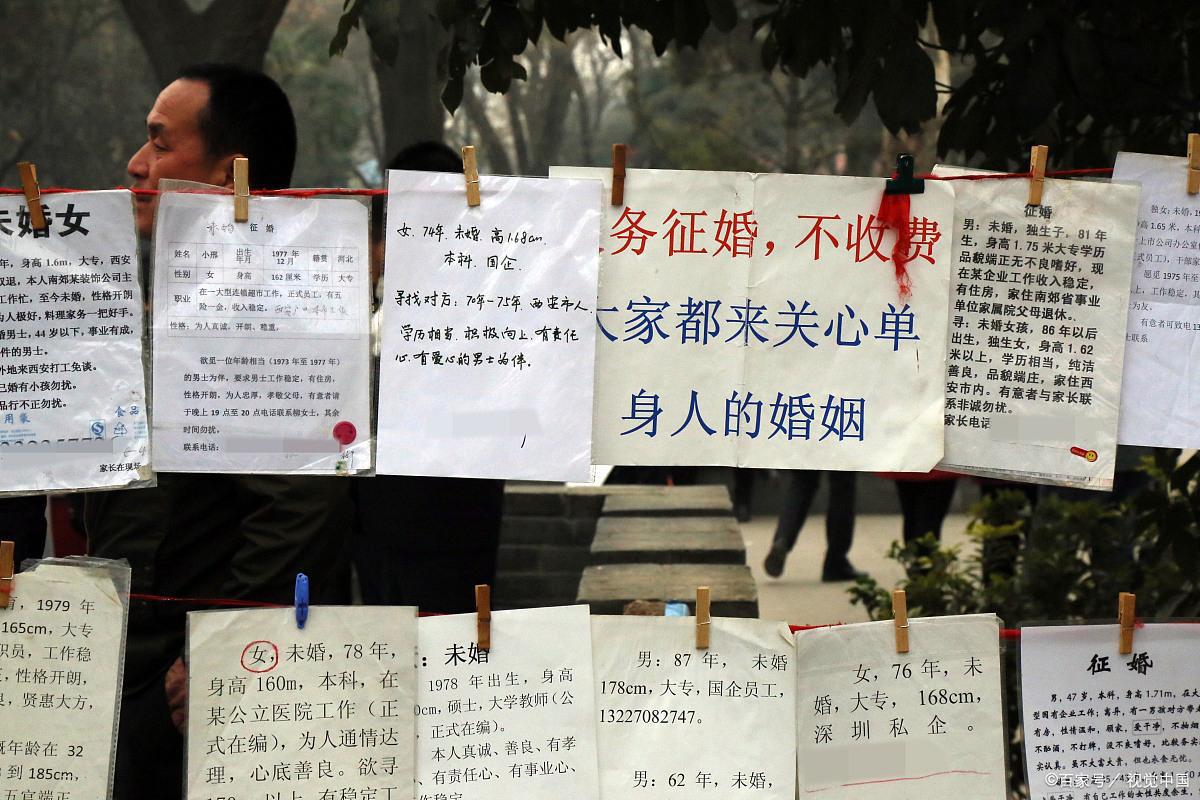 未婚女
年，身高1.6m，大专，西安
双退，本人南郊某装饰公司主
工作忙，至今未婚，性格开朗
为人极好，料理家务一把好手。
婚男士，44岁以下，事业有成，
件的男士。
外地来西安打工免谈。
已婚有小孩勿扰。
品行不正勿扰。
食品
家长在现场
未婚 征婚
姓名 小邢 出生年月 1977年12月 籍贯 河北
性别 女 身高 162厘米 学历 大专
职业 在一大型连锁超市工作，正式员工，有五
险一金，收入稳定。
性格：为人真诚、开朗、稳重。
欲觅一位年龄相当（1973年至1977年）
的男士为伴，要求男士工作稳定，有住房，
性格开朗，为人忠厚，孝敬父母，有意者请
于晚上19点至20点电话联系柳女士，其余
时间勿扰。
联系电话：
女，74年，未婚，高1.68cm，
本科，国企，
寻找对方：70年-75年，西安市人，
学历相当，积极向上，有责任
心，有爱心的男士为伴。
务征婚，不收费
大家都来关心单
身人的婚姻
征婚
男：未婚，独生子，81年
生，身高1.75米大专学历
品貌端正无不良嗜好，现
在某企业工作收入稳定，
有住房，家住南郊省事业
单位家属院父母退休。
寻：未婚女孩，86年以后
出生，独生女，身高1.62
米以上，学历相当，纯洁
善良，品貌端庄，家住西
安市内。有意者与家长联
系非诚勿扰。
家长电话
独女；未婚，
高1.65米，本科
上市公司办公室
式员工），干部家
愿觅1975年
上，工作稳定，
为友。
有意可致电13
联系
育，1979年
165cm，大专
职员，工作稳
，性格开朗，
，贤惠大方，
年龄在32
到185cm，
五官端正
女，未婚，78年，
身高160m，本科，在
某公立医院工作（正
式在编），为人通情达
理，心底善良。欲寻
170以上，有稳定工
：未婚
1978年出生，身高
0cm，硕士，大学教师（公
，正式在编）。
本人真诚、善良、有孝
、有责任心、有事业心、
作稳定
男：87年，未婚
178cm，大专，国企员工，
13227082747。
男：62年，未婚，
女，76年，未
婚，大专，168cm，
深圳私企。
征婚
男，47岁，本科，身高1.71m，在大
型国有企业工作；离异，有一男孩对方带走
有房，性情温和，顾家，爱干净，不抽烟
不酗酒，不打牌，没不良嗜好，比较务实
实认真。虽不大富大贵，但也衣食无忧。
©百家号/视觉中国